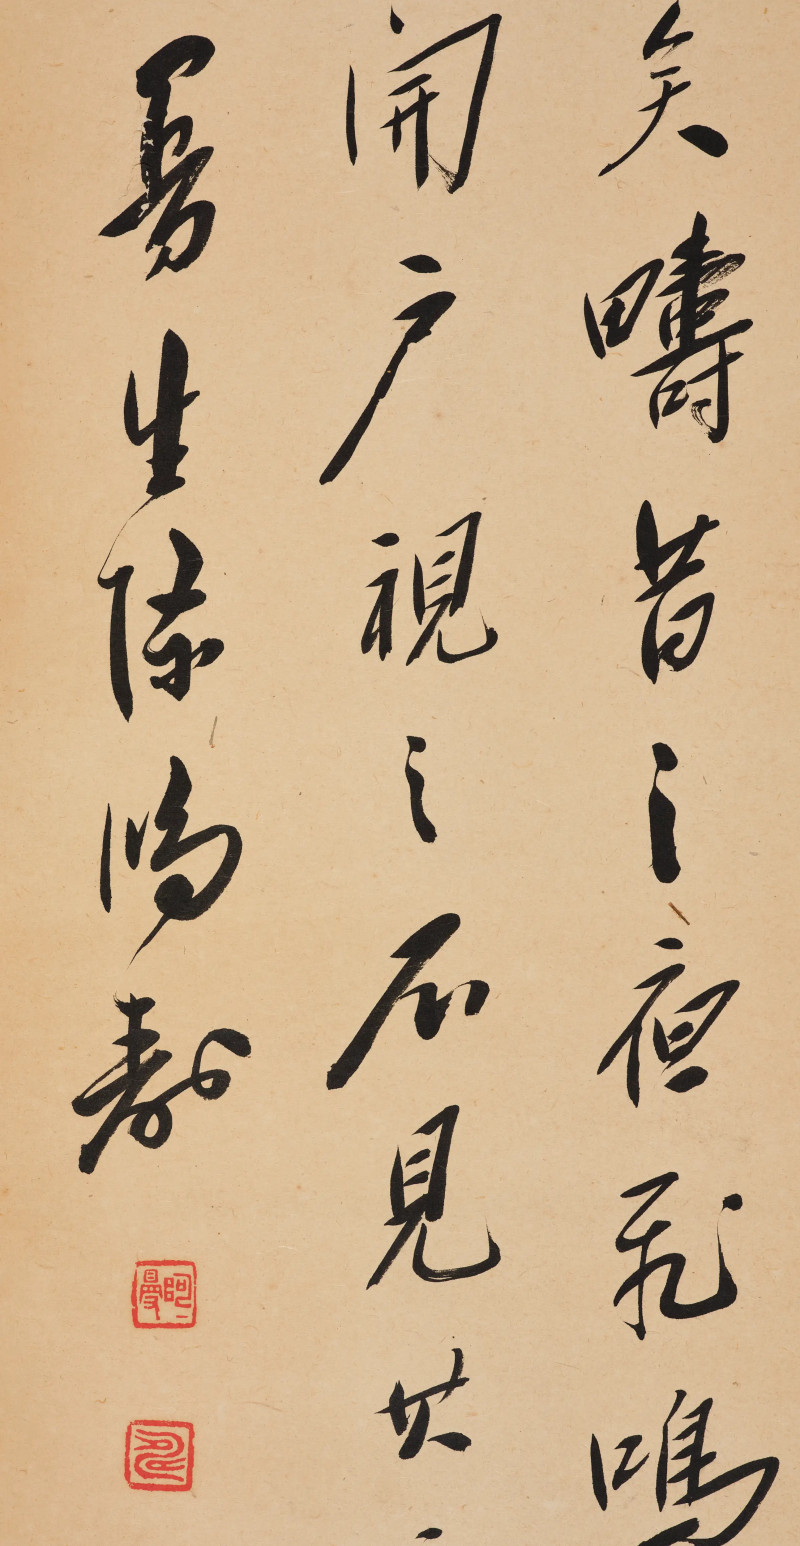 矣疇昔之夜飛鳴
開戶視之不見其
曼生陳鴻壽
阿曼